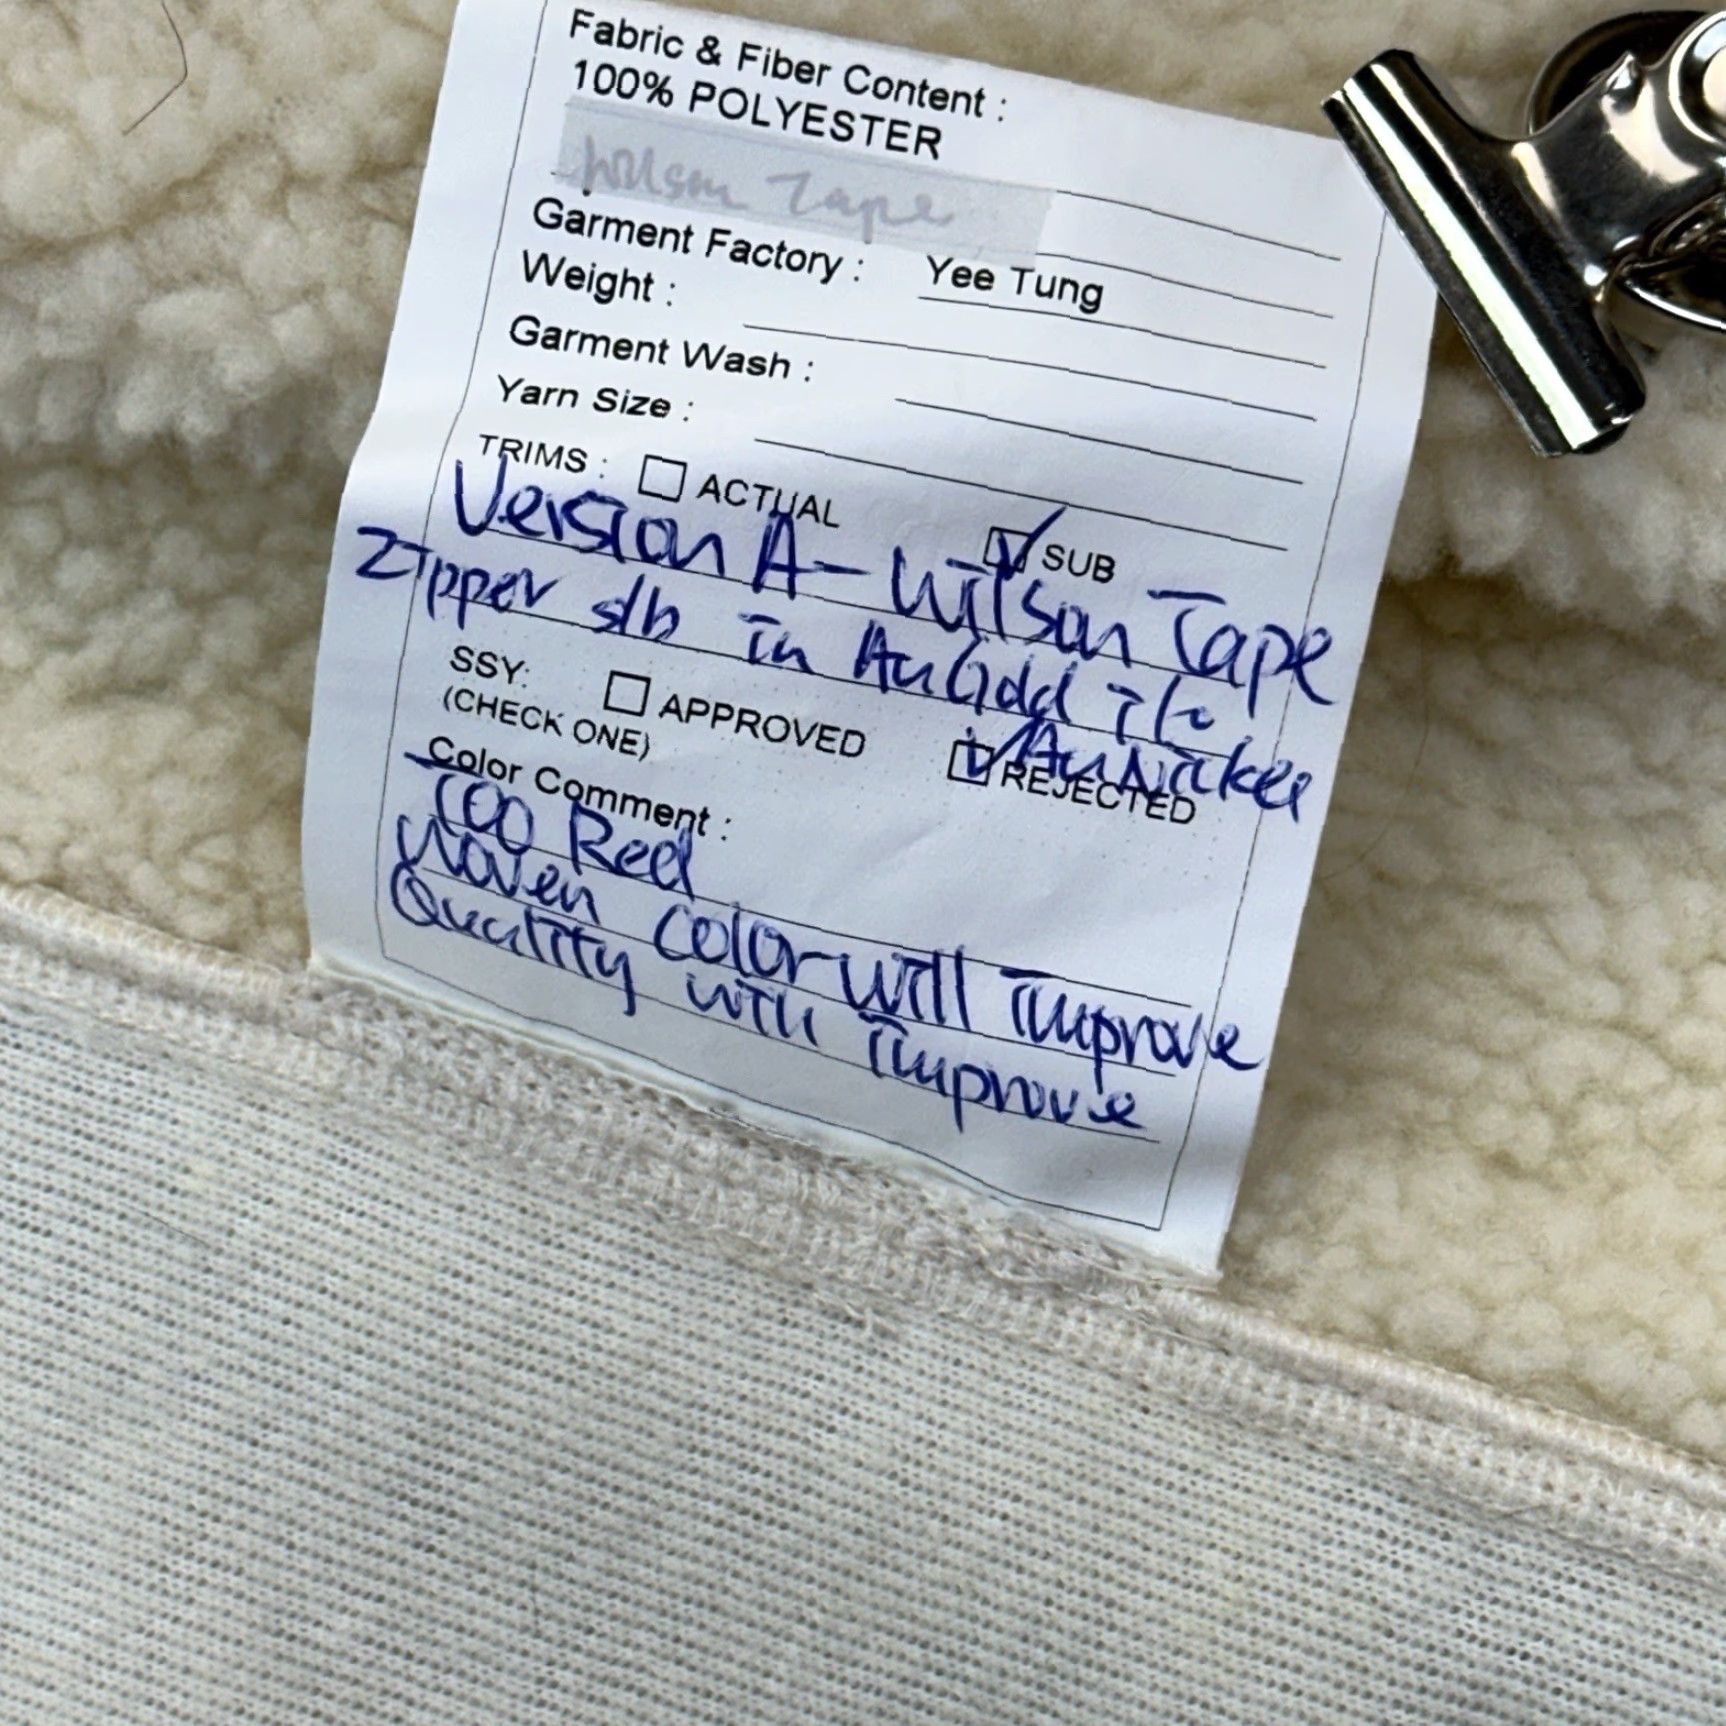 Fabric & Fiber Content :
100% POLYESTER
Wilson Tape
Garment Factory : Yee Tung
Weight :
Garment Wash :
Yarn Size :
TRIMS : ACTUAL SUB
Version A - Wilson Tape
Zipper s/b in AuGdd ifo
AuNickel
SSY: APPROVED REJECTED
(CHECK ONE)
Color Comment :
Too Red
Woven Color will Improve
Quality will Improve